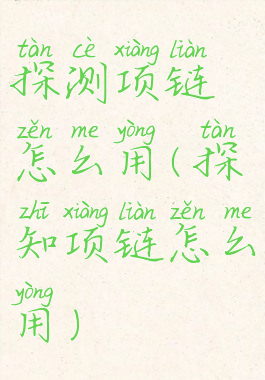 tàn cè xiàng liàn
探测项链
zěn me yòng tàn
怎么用(探
zhī xiàng liàn zěn me
知项链怎么
yòng
用)